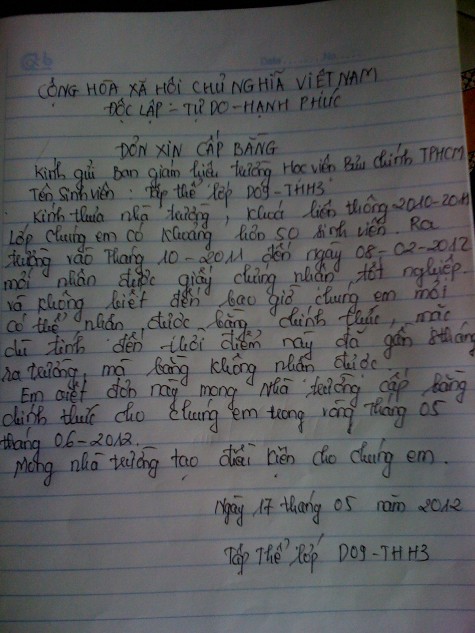 Date No
CỘNG HÒA XÃ HỘI CHỦ NGHĨA VIỆT NAM
ĐỘC LẬP - TỰ DO - HẠNH PHÚC
ĐƠN XIN CẤP BẰNG
Kính gửi Ban giám hiệu trường Học viện Bưu chính TPHCM
Tên sinh viên : Tập thể lớp D09-THH3
Kính thưa nhà trường, khoá liên thông 2010-2011
Lớp chúng em có khoảng hơn 50 sinh viên. Ra
trường vào tháng 10-2011 đến ngày 08-02-2012
mới nhận được giấy chứng nhận tốt nghiệp
và không biết đến bao giờ chúng em mới
có thể nhận được bằng chính thức, mặc
dù tính đến thời điểm này đã gần 8 tháng
ra trường, mà bằng không nhận được.
Em viết đơn này mong Nhà trường cấp bằng
chính thức cho chúng em trong vòng tháng 05
tháng 06-2012.
Mong nhà trường tạo điều kiện cho chúng em.
Ngày 17 tháng 05 năm 2012
Tập thể lớp D09-THH3